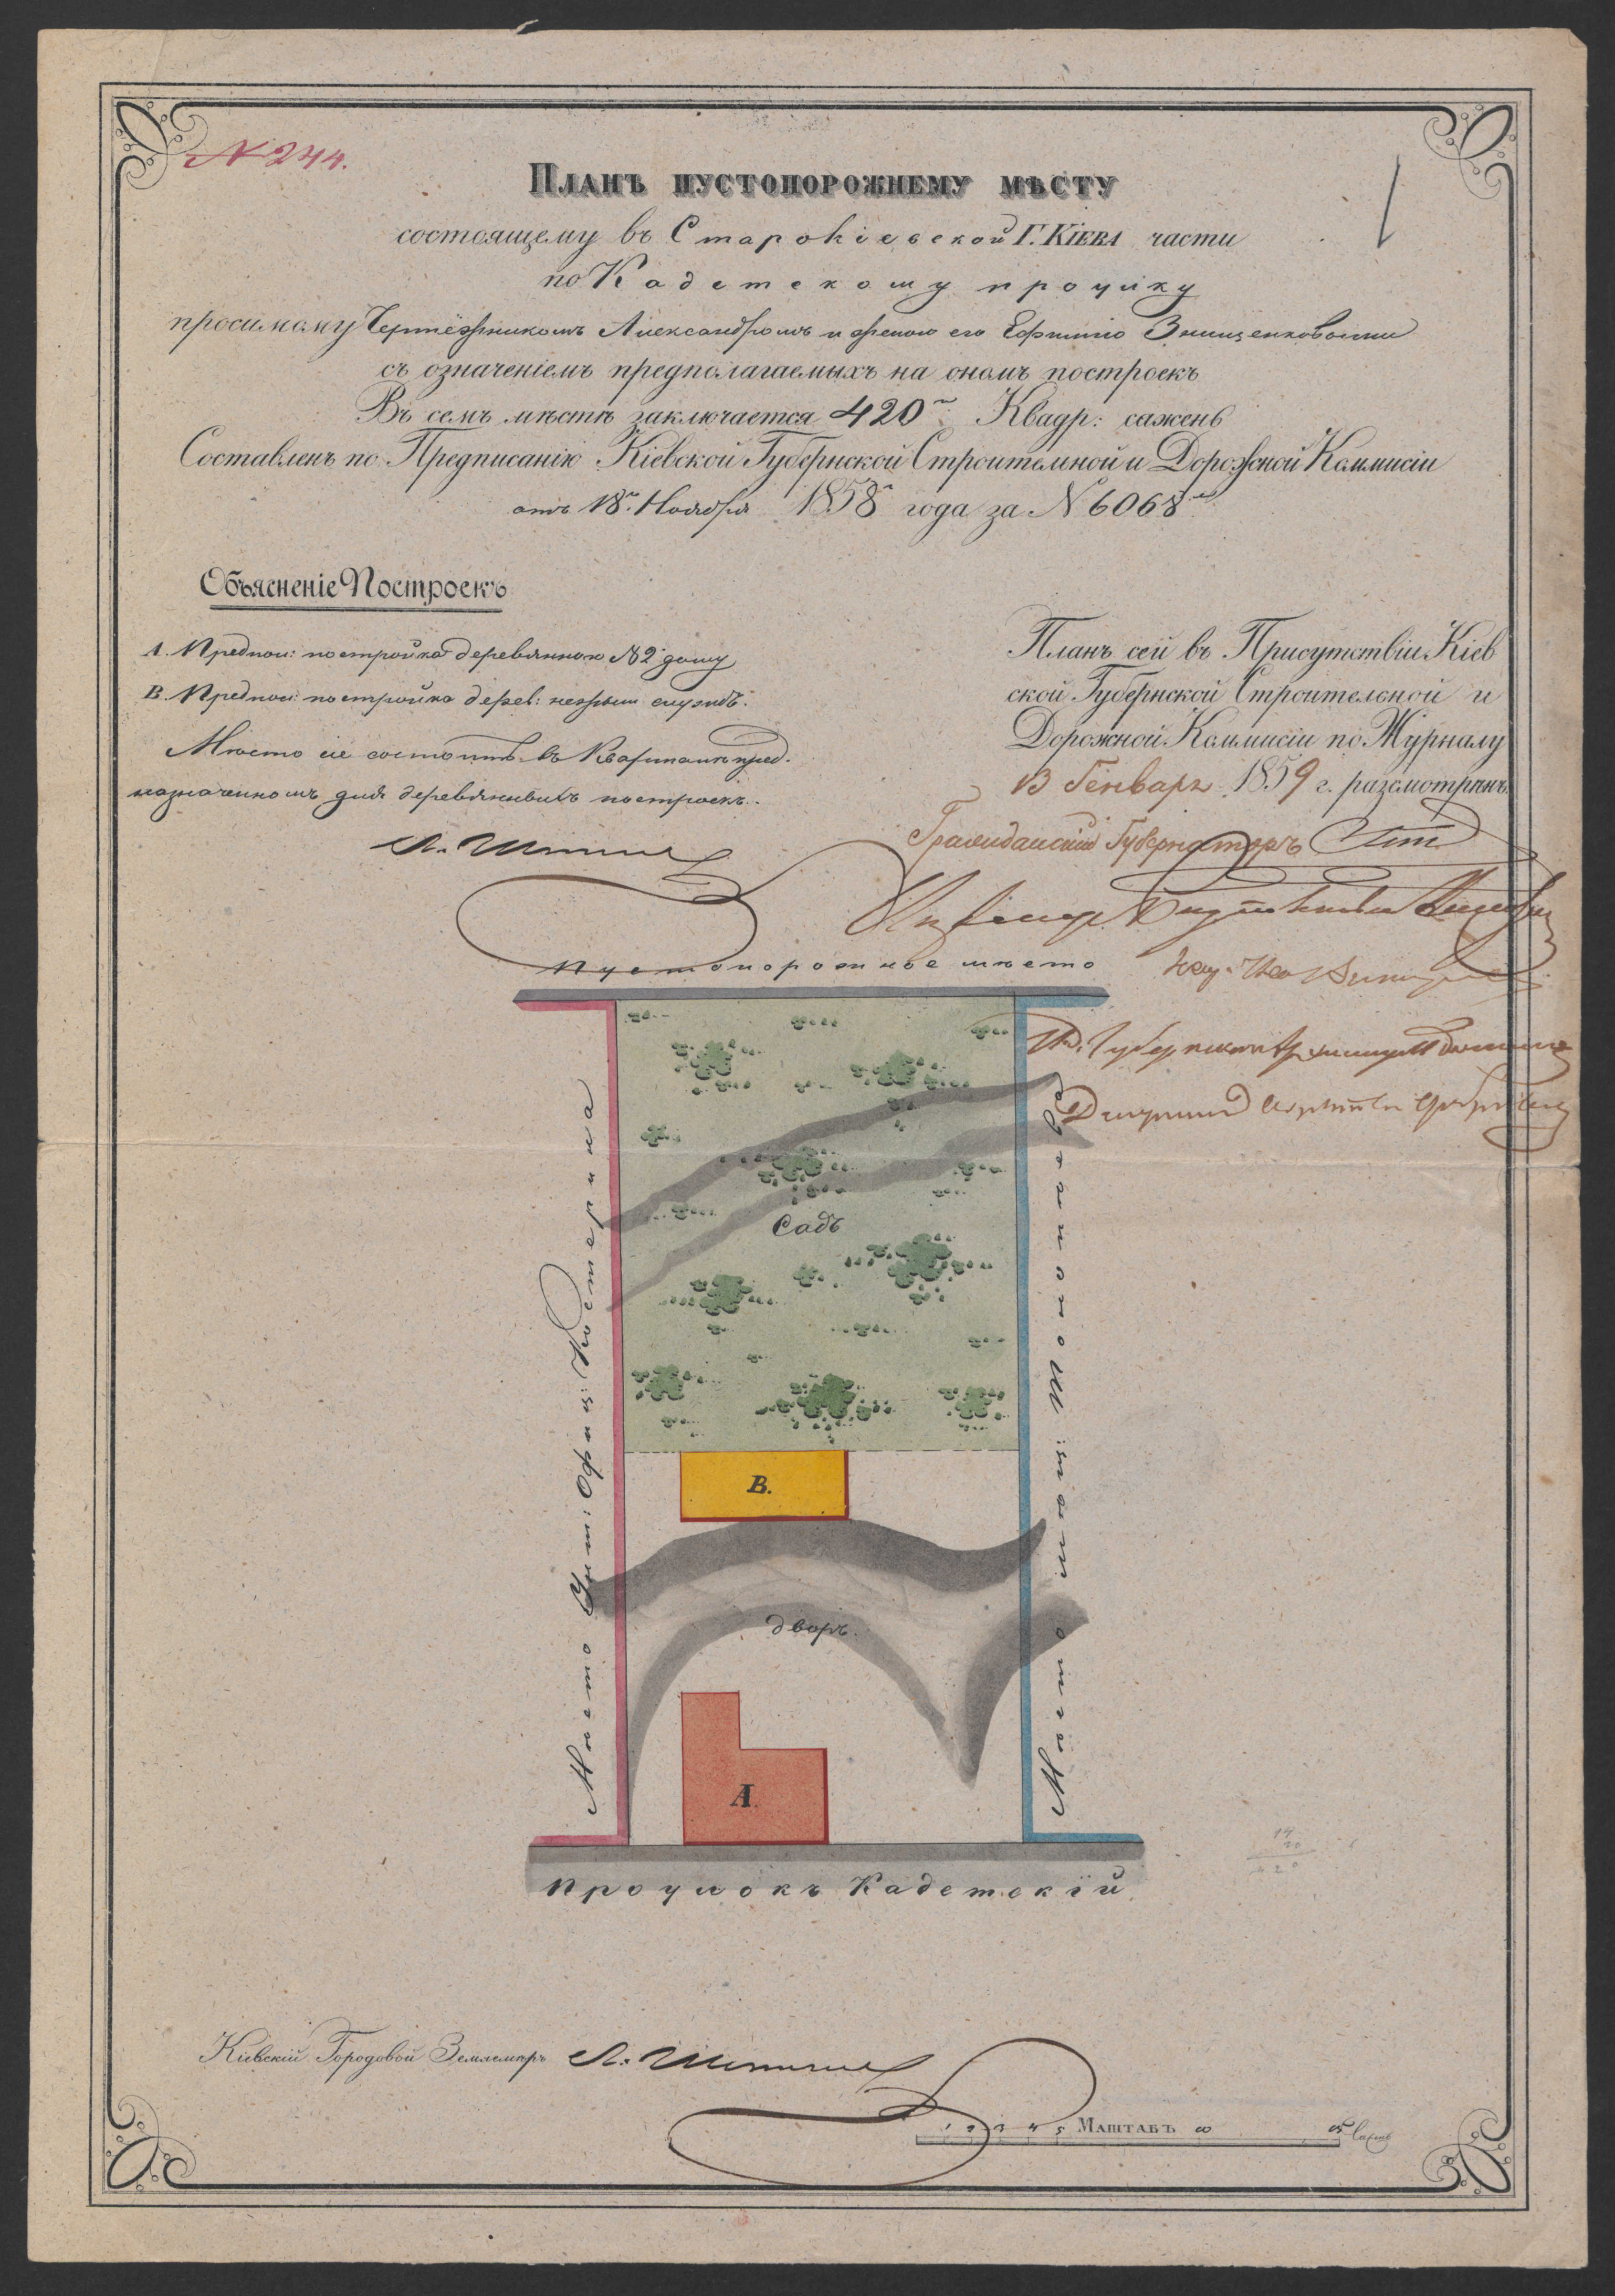 N 244.
Планъ пустопорожнему мѣсту
состоящему въ Старокіевской Г. Кіева части
по Кадетскому проулку
просимому Чертёжникомъ Александромъ и женою его Ефиміею Знищенковыми
съ означеніемъ предполагаемыхъ на ономъ построекъ
Въ семъ мѣстѣ заключается 420 Квадр: сажень
Составленъ по Предписанію Кіевской Губернской Строительной и Дорожной Коммисіи
отъ 18 Ноября 1858 года за N 6068
Объясненіе Построекъ
А. Предпол: постройка деревянному N 2 дому
В. Предпол: постройка дерев: нежил: службъ.
Мѣсто сіе состоитъ въ Кварталѣ пред-
назначенномъ для деревянныхъ построекъ.
Планъ сей въ Присутствіи Кіев
ской Губернской Строительной и
Дорожной Коммисіи по Журналу
13 Генваря 1859 г. разсмотрѣнъ
Гражданскій Губернаторъ
Пустопорожнее мѣсто
Садъ
В.
дворъ.
А.
Мѣсто Унт: Офиц: Костерина
Мѣсто
Проулокъ Кадетскій.
14
30
420
Кіевскій Городовой Землемѣръ
1 2 3 4 5 Маштабъ 10 15 Саж